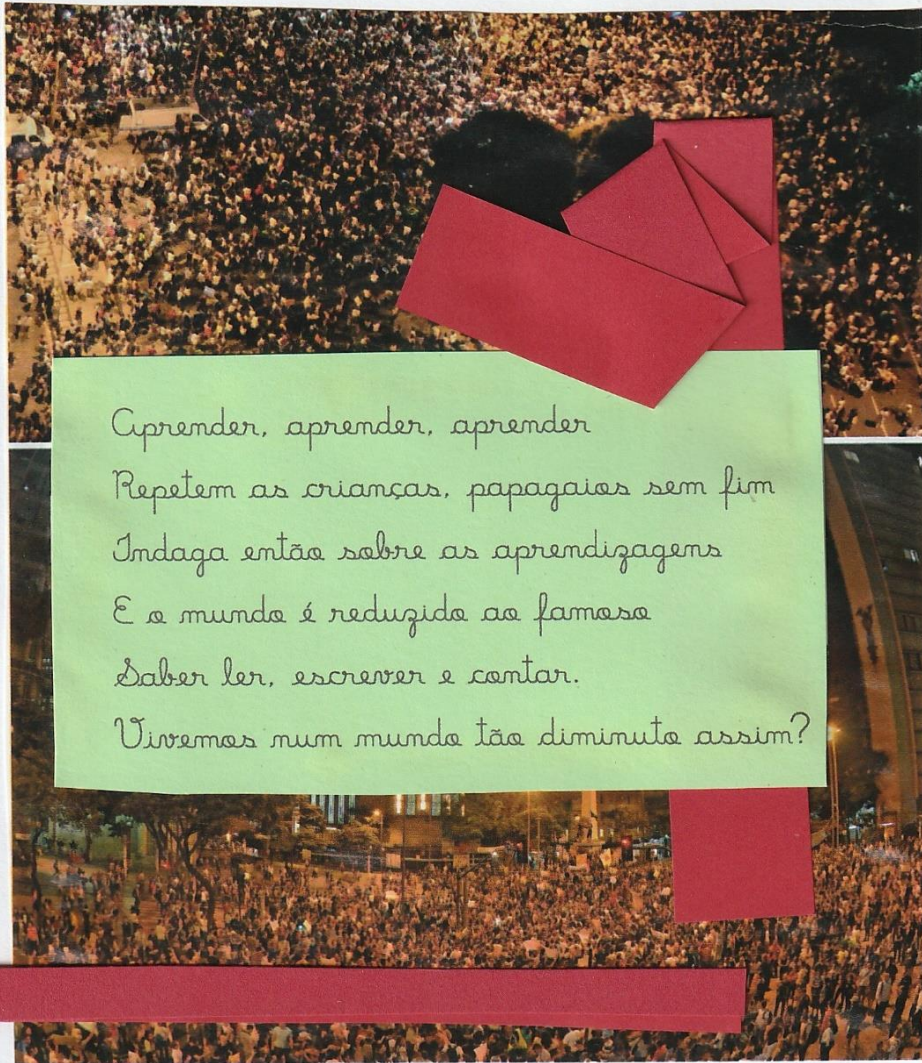 Aprender, aprender, aprender
Repetem as crianças, papagaios sem fim
Indaga então sobre as aprendizagens
E o mundo é reduzido ao famoso
Saber ler, escrever e contar.
Vivemos num mundo tão diminuto assim?